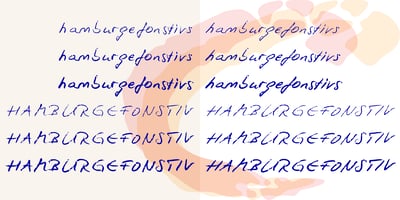 hamburgefonstivs hamburgefonstivs
hamburgefonstivs hamburgefonstivs
hamburgefonstivs hamburgefonstivs
HAMBURGEFONSTIV HAMBURGEFONSTIV
HAMBURGEFONSTIV HAMBURGEFONSTIV
HAMBURGEFONSTIV HAMBURGEFONSTIV